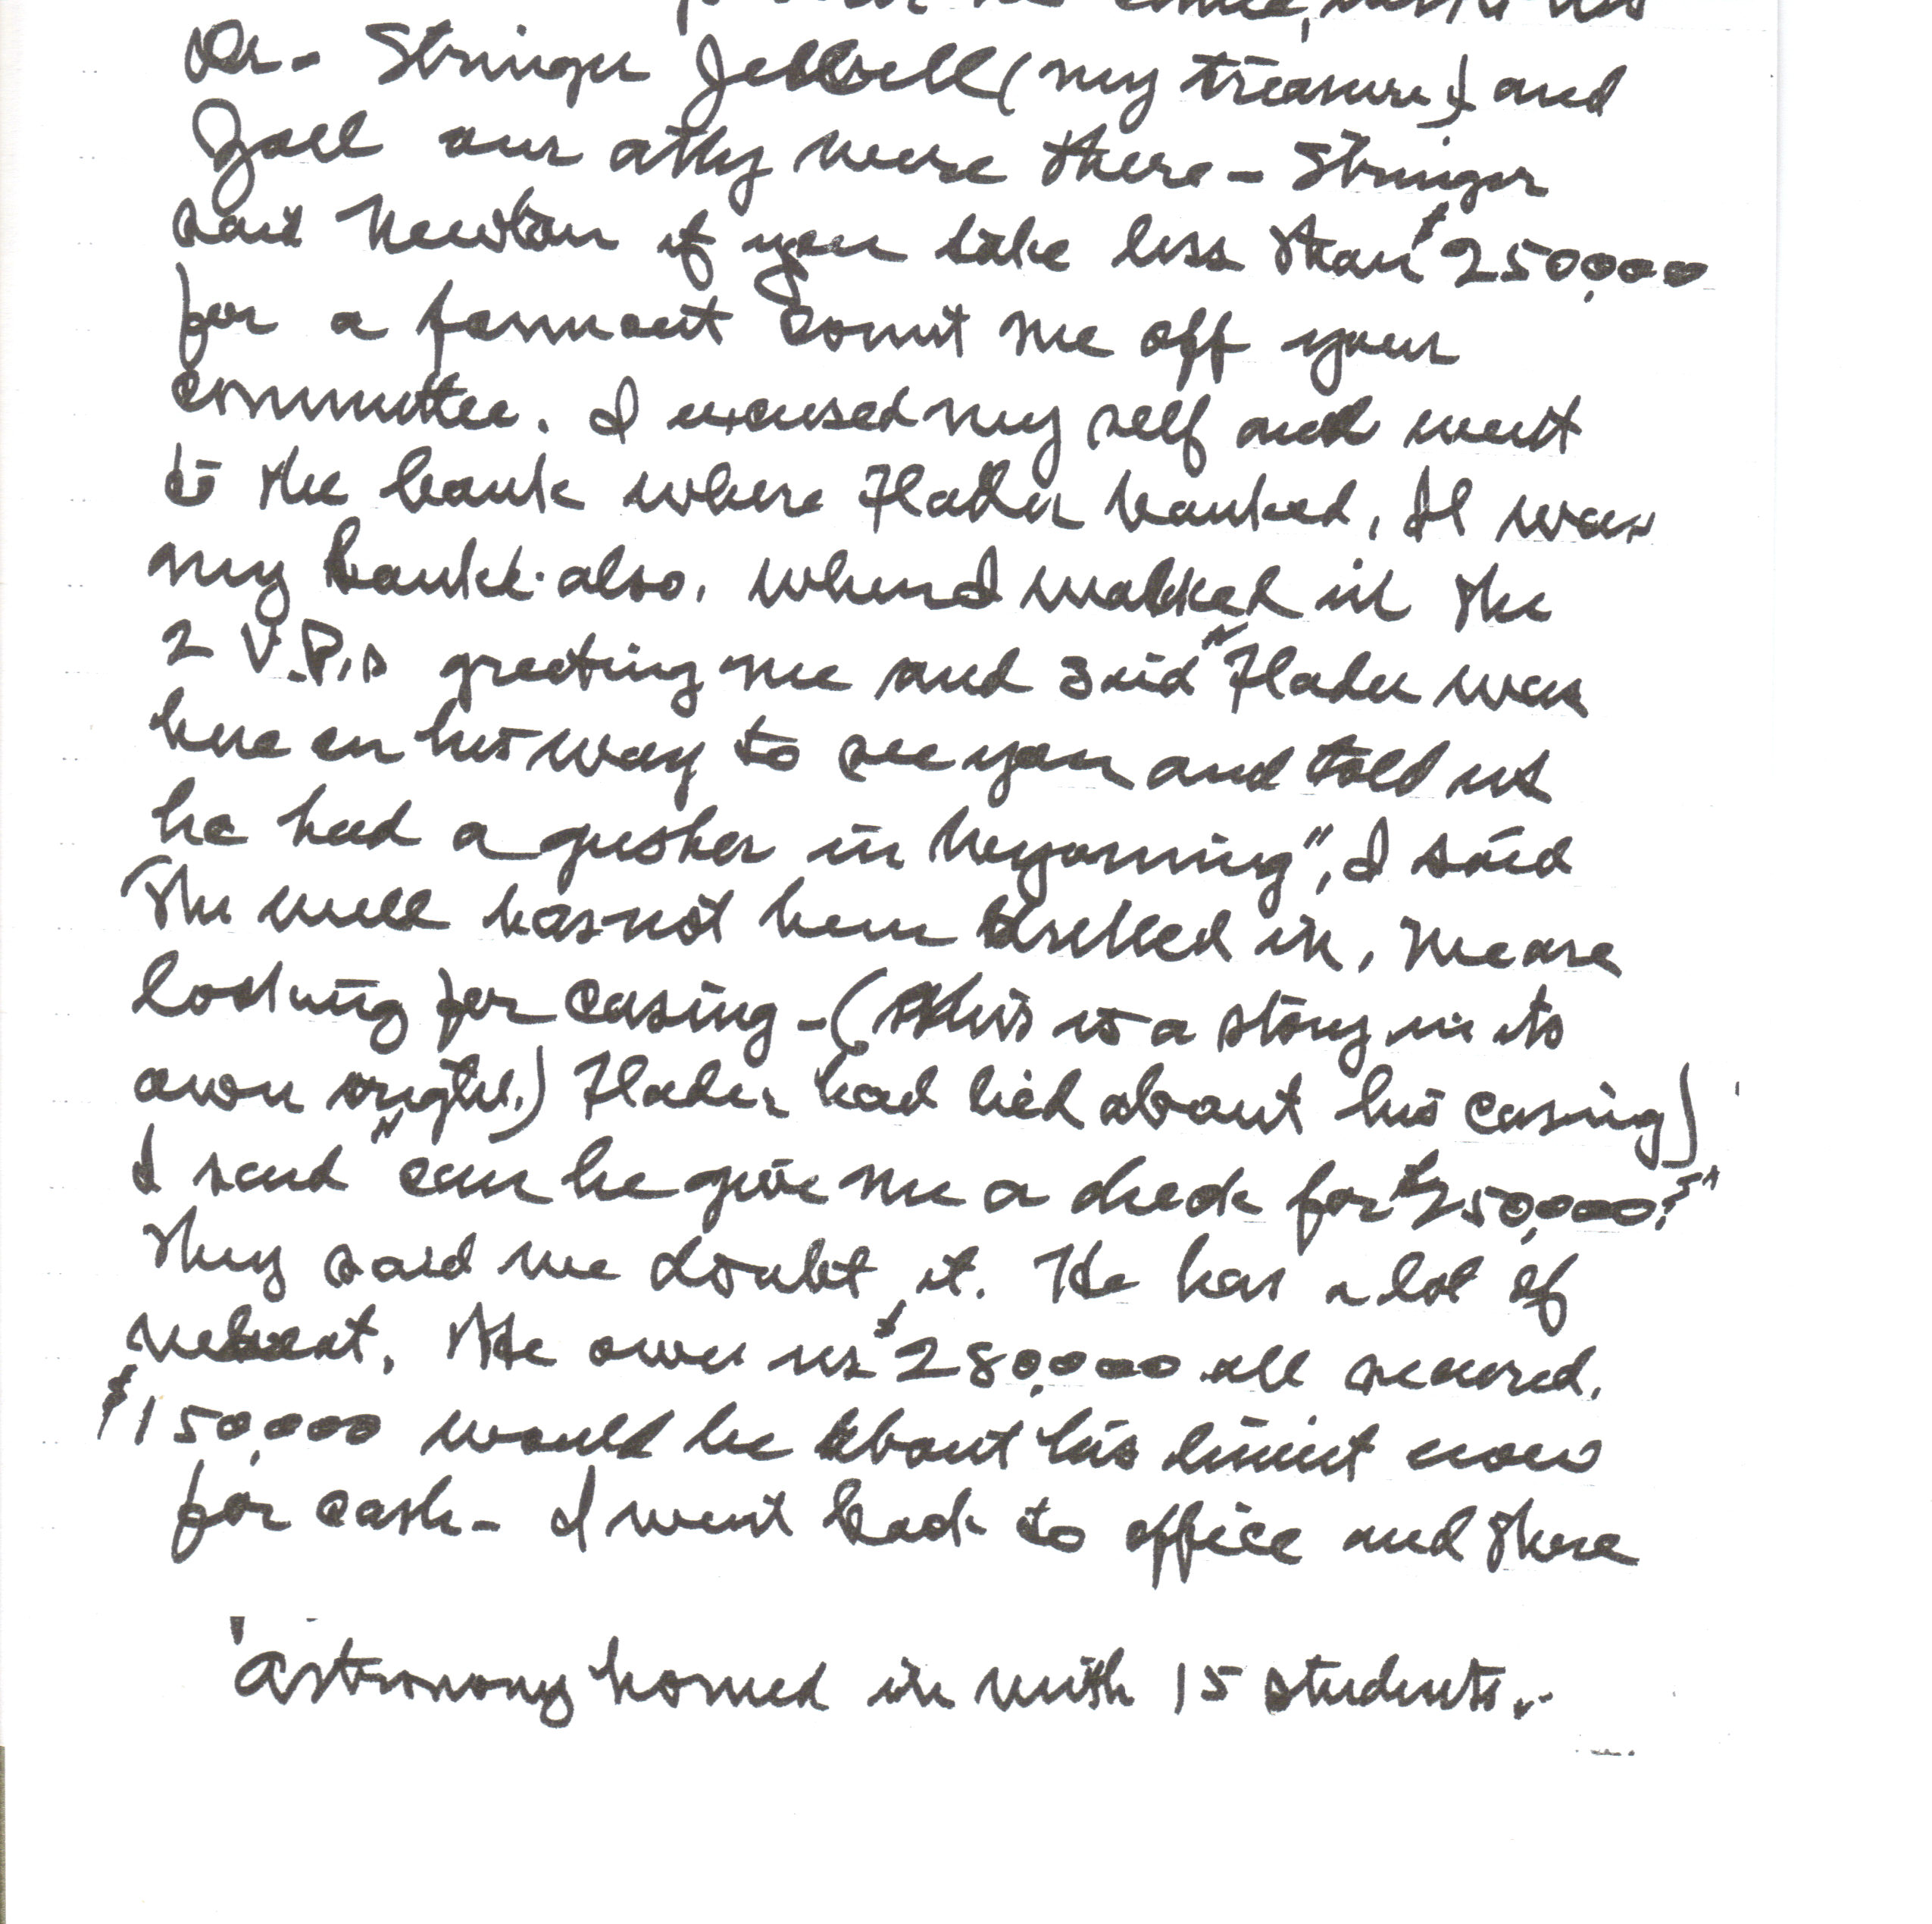 Dr - Stringer Jebbell (my treasurer) and
Zall our atty were there - Stringer
said Newton if you take less than $250,000
for a farmout count me off your
committee. I excused my self and went
to the bank where Flader banked, It was
my bank also. When I walked in the
2 V.P.s greeting me and said "Flader was
here on his way to see you and told us
he had a gusher in Wyoming", I said
The well has not been drilled in, We are
looking for casing - (This is a story in its
own right.) Flader had lied about his casing)
I said "can he give me a check for $250,000?"
They said we doubt it. He has a lot of
He owes us $280,000 all secured.
$150,000 would be about his limit now
for cash - I went back to office and there
astronomy homed in with 15 students..